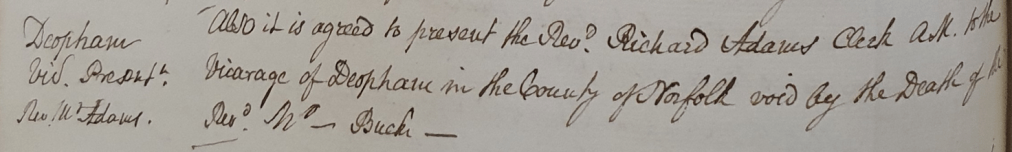 Deopham
Vic. Presentn.
Rev. Mr Adams.
Also it is agreed to present the Revd. Richard Adams Clerk A.M. to the
Vicarage of Deopham in the County of Norfolk void by the Death of the
Revd. Mr — Buck —